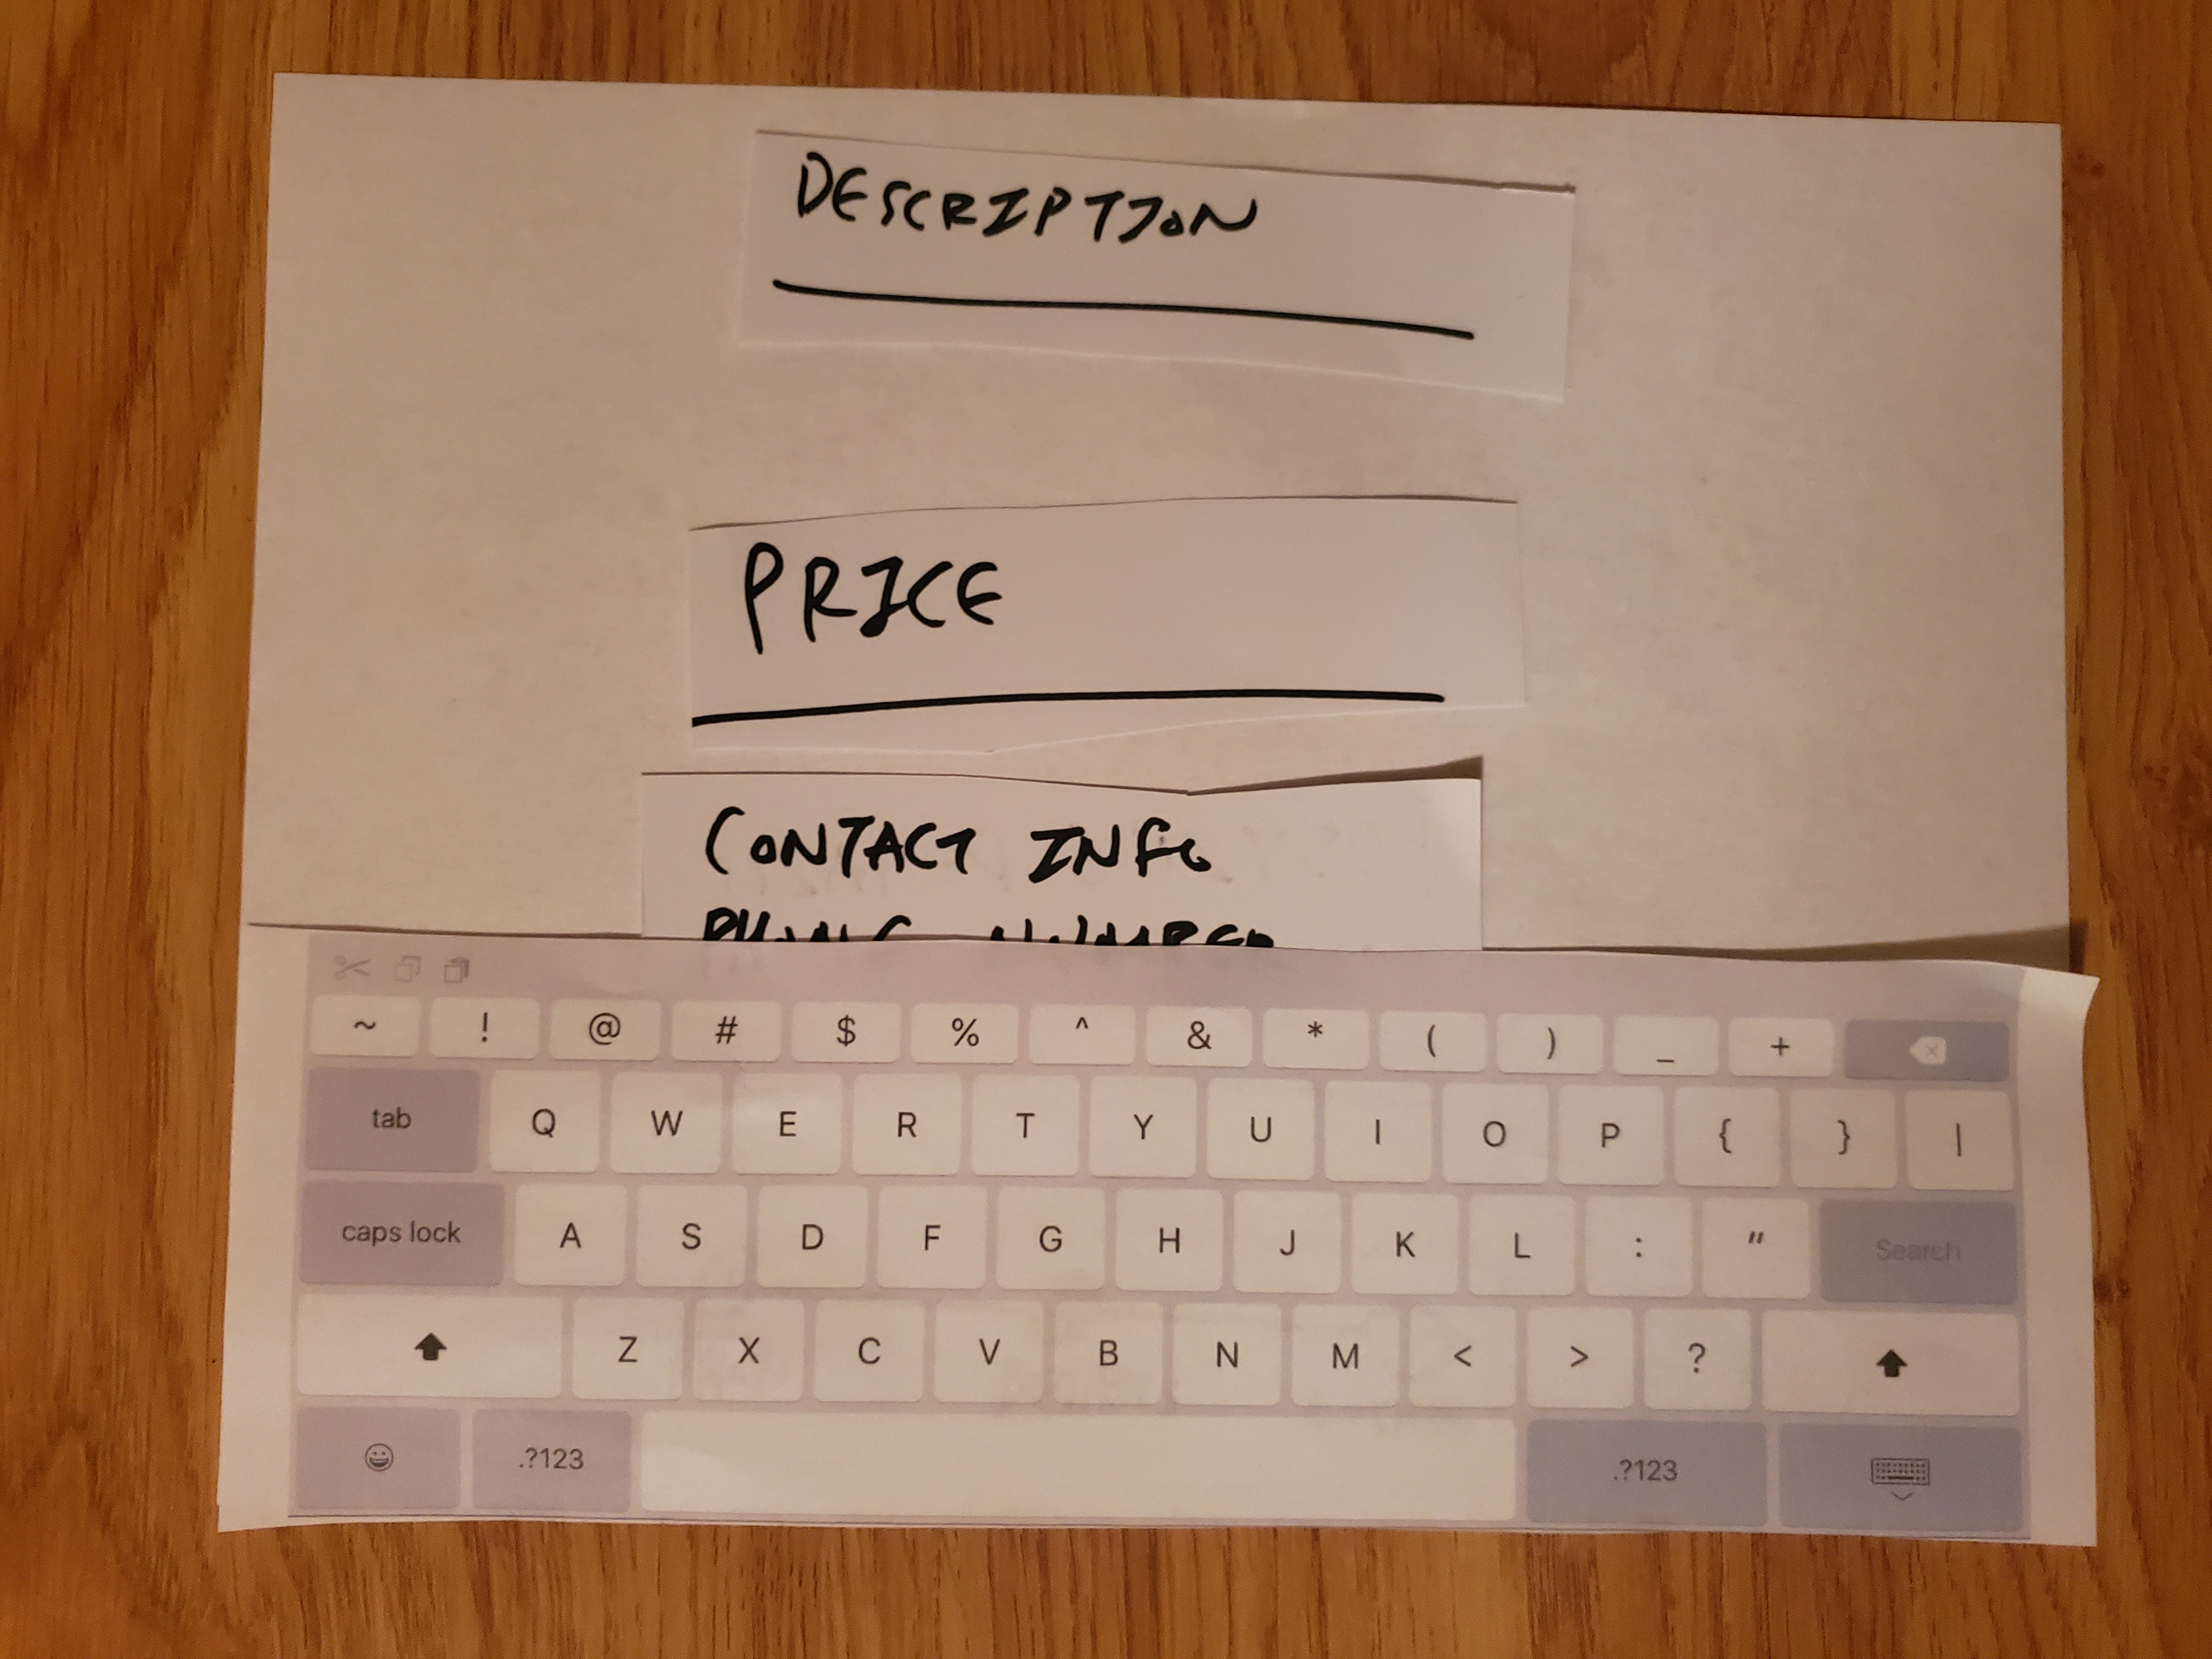 DESCRIPTION
PRICE
CONTACT INFO
PHONE NUMBER
~ ! @ # $ % ^ & * ( ) _ +
tab Q W E R T Y U I O P { } |
caps lock A S D F G H J K L : " Search
Z X C V B N M < > ?
.?123 .?123